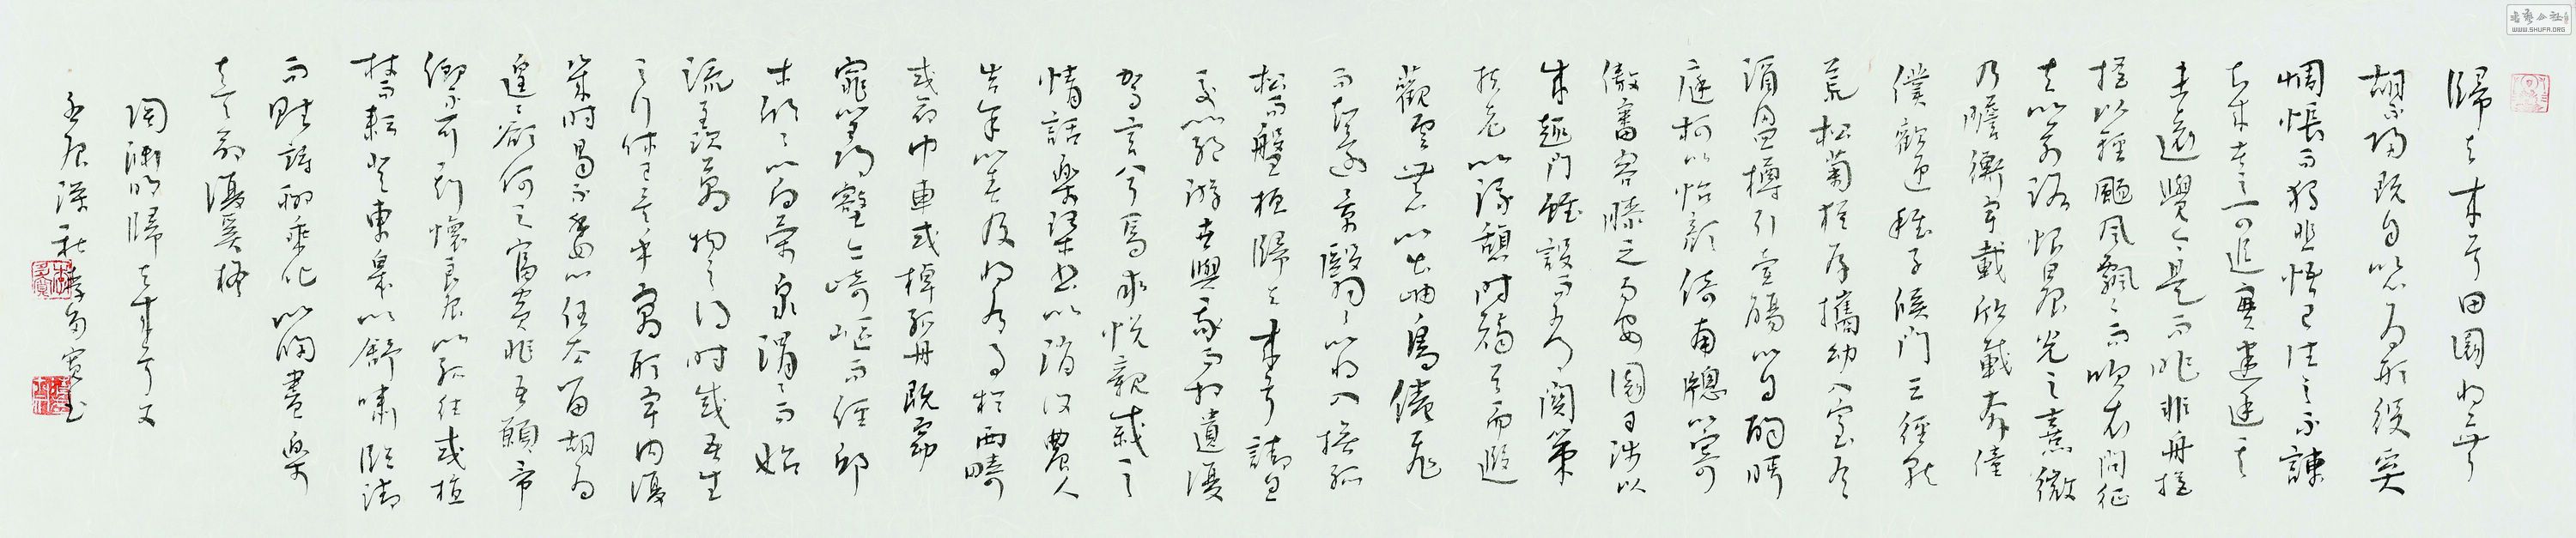 歸去來兮田園將蕪兮
胡不歸既自以心為形役奚
惆悵而獨悲悟已往之不諫
知來者之可追實迷途其
未遠覺今是而昨非舟搖
搖以輕颺風飄々而吹衣問征
夫以前路恨晨光之熹微
乃瞻衡宇載欣載奔僮
僕歡迎稚子候門三徑就
荒松菊猶存攜幼入室有
酒盈樽引壺觴以自酌眄
庭柯以怡顏倚南牕以寄
傲審容膝之易安園日涉以
成趣門雖設而常關策
扶老以流憩時矯首而遐
觀雲無心以出岫鳥倦飛
而知還景翳々以將入撫孤
松而盤桓歸去來兮請息
交以絕游世與我而相遺復
駕言兮焉求悅親戚之
情話樂琴書以消憂農人
告余以春及將有事於西疇
或命巾車或棹孤舟既窈
窕以尋壑亦崎嶇而經邱
木欣々以向榮泉涓々而始
流善萬物之得時感吾生
之行休已矣乎寓形宇內復
幾時曷不委心任去留胡為
遑々欲何之富貴非吾願帝
鄉不可期懷良辰以孤往或植
杖而耘登東皋以舒嘯臨清
而賦詩聊乘化以歸盡樂
夫天命復奚疑
陶淵明歸去來兮文
壬辰深秋 多寶書
WWW.SHUFA.ORG